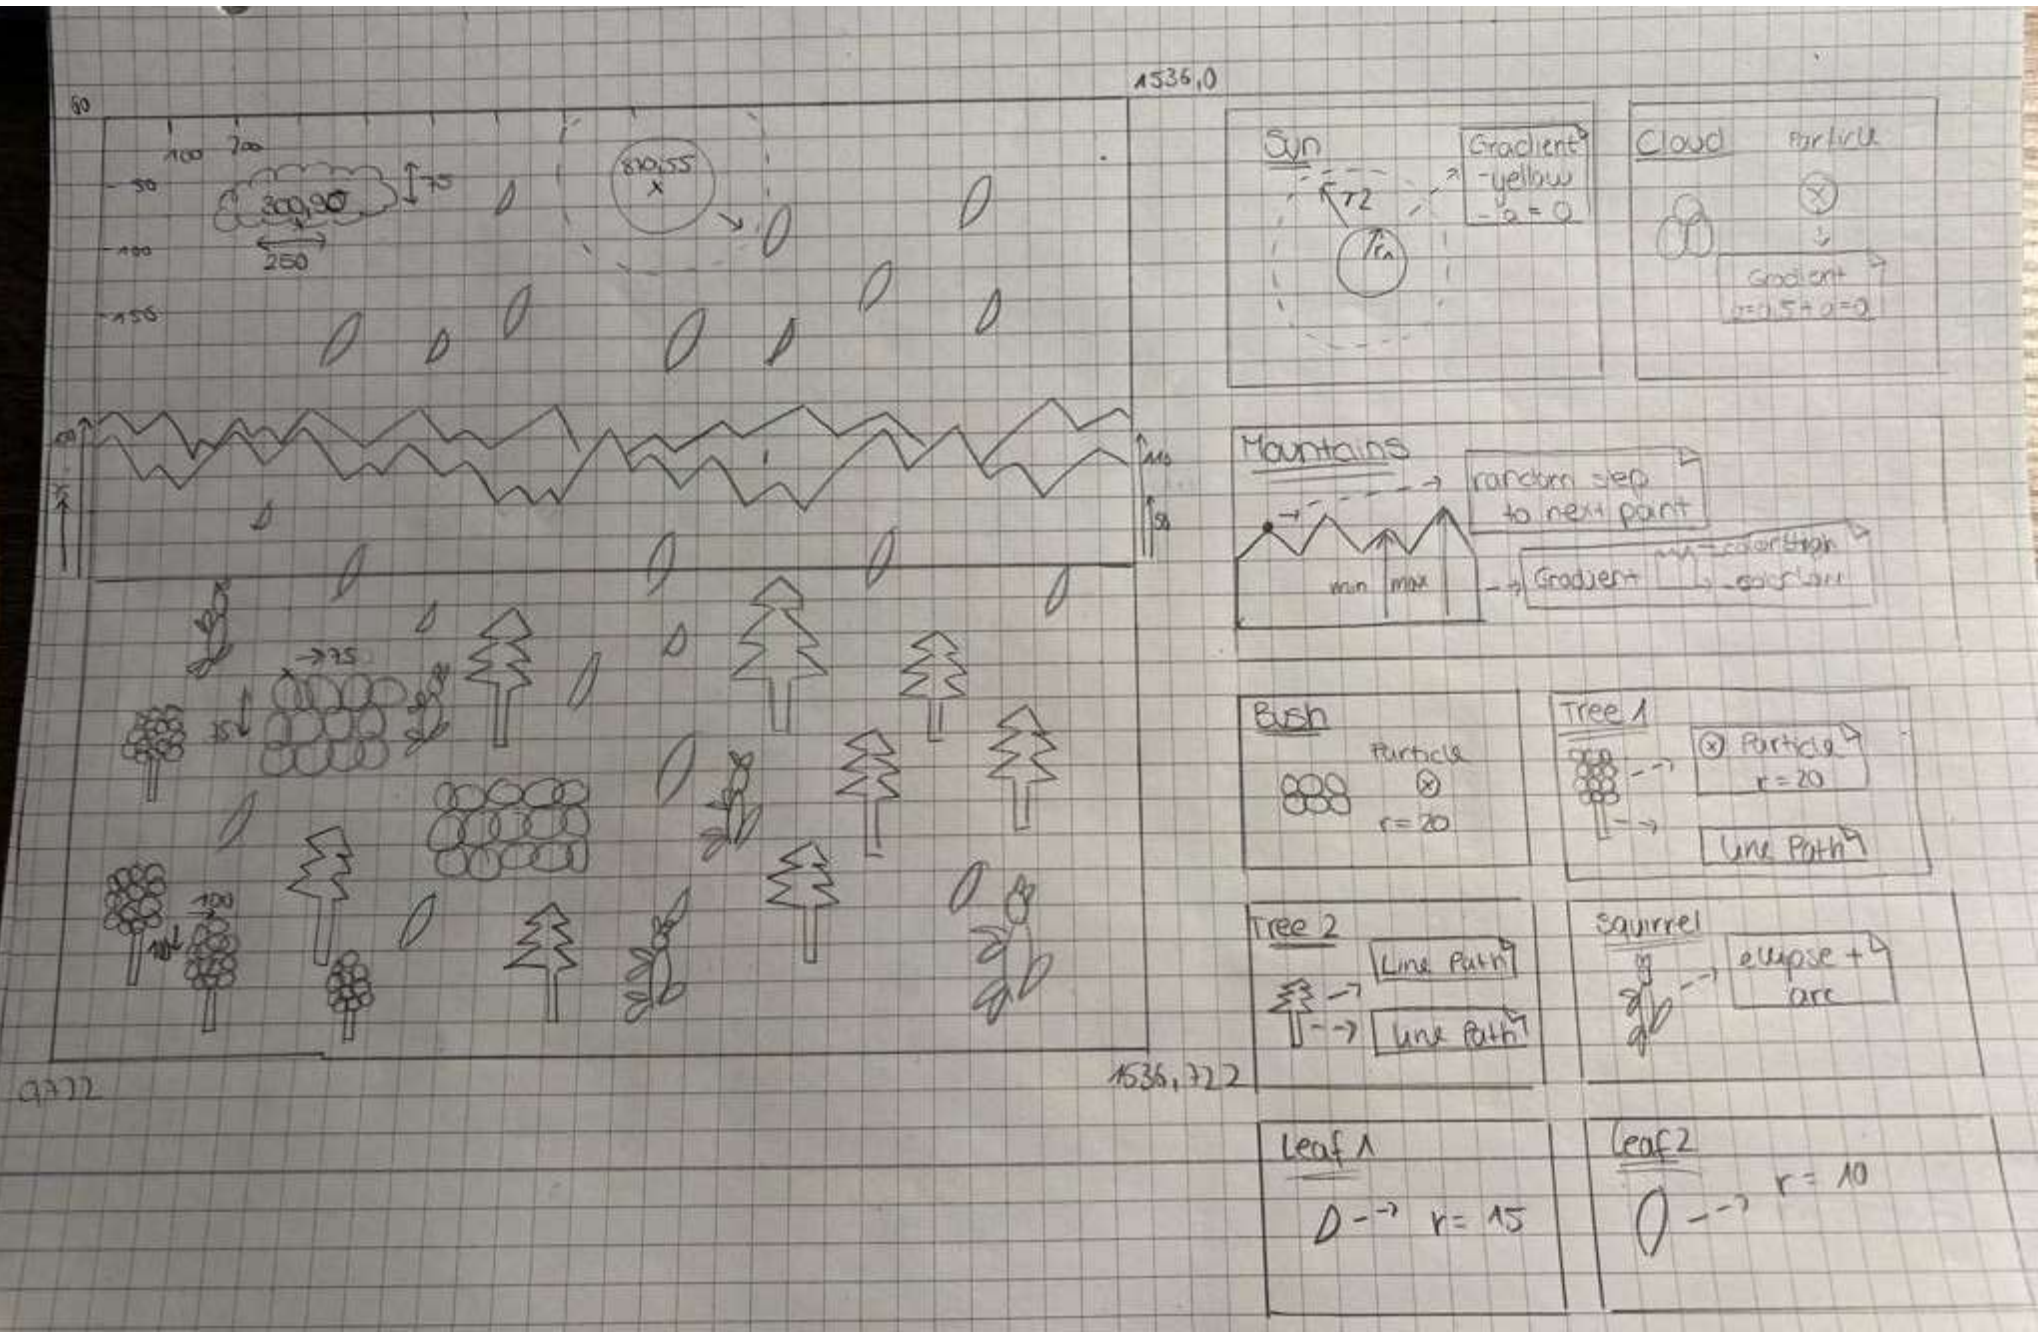 1536,0
100
200
50
100
150
300,90
75
250
810,55
x
110
50
→75
35
100
1536,722
Sun
r2
r1
Gradient
-yellow
- a = 0
Cloud
Particle
Gradient
Mountains
random step
to next point
min
max
Gradient
Bush
Particle
r=20
Tree 1
Particle
r=20
Line Path
Tree 2
Line Path
Line Path
Squirrel
ellipse +
arc
Leaf 1
r= 15
Leaf 2
r= 10